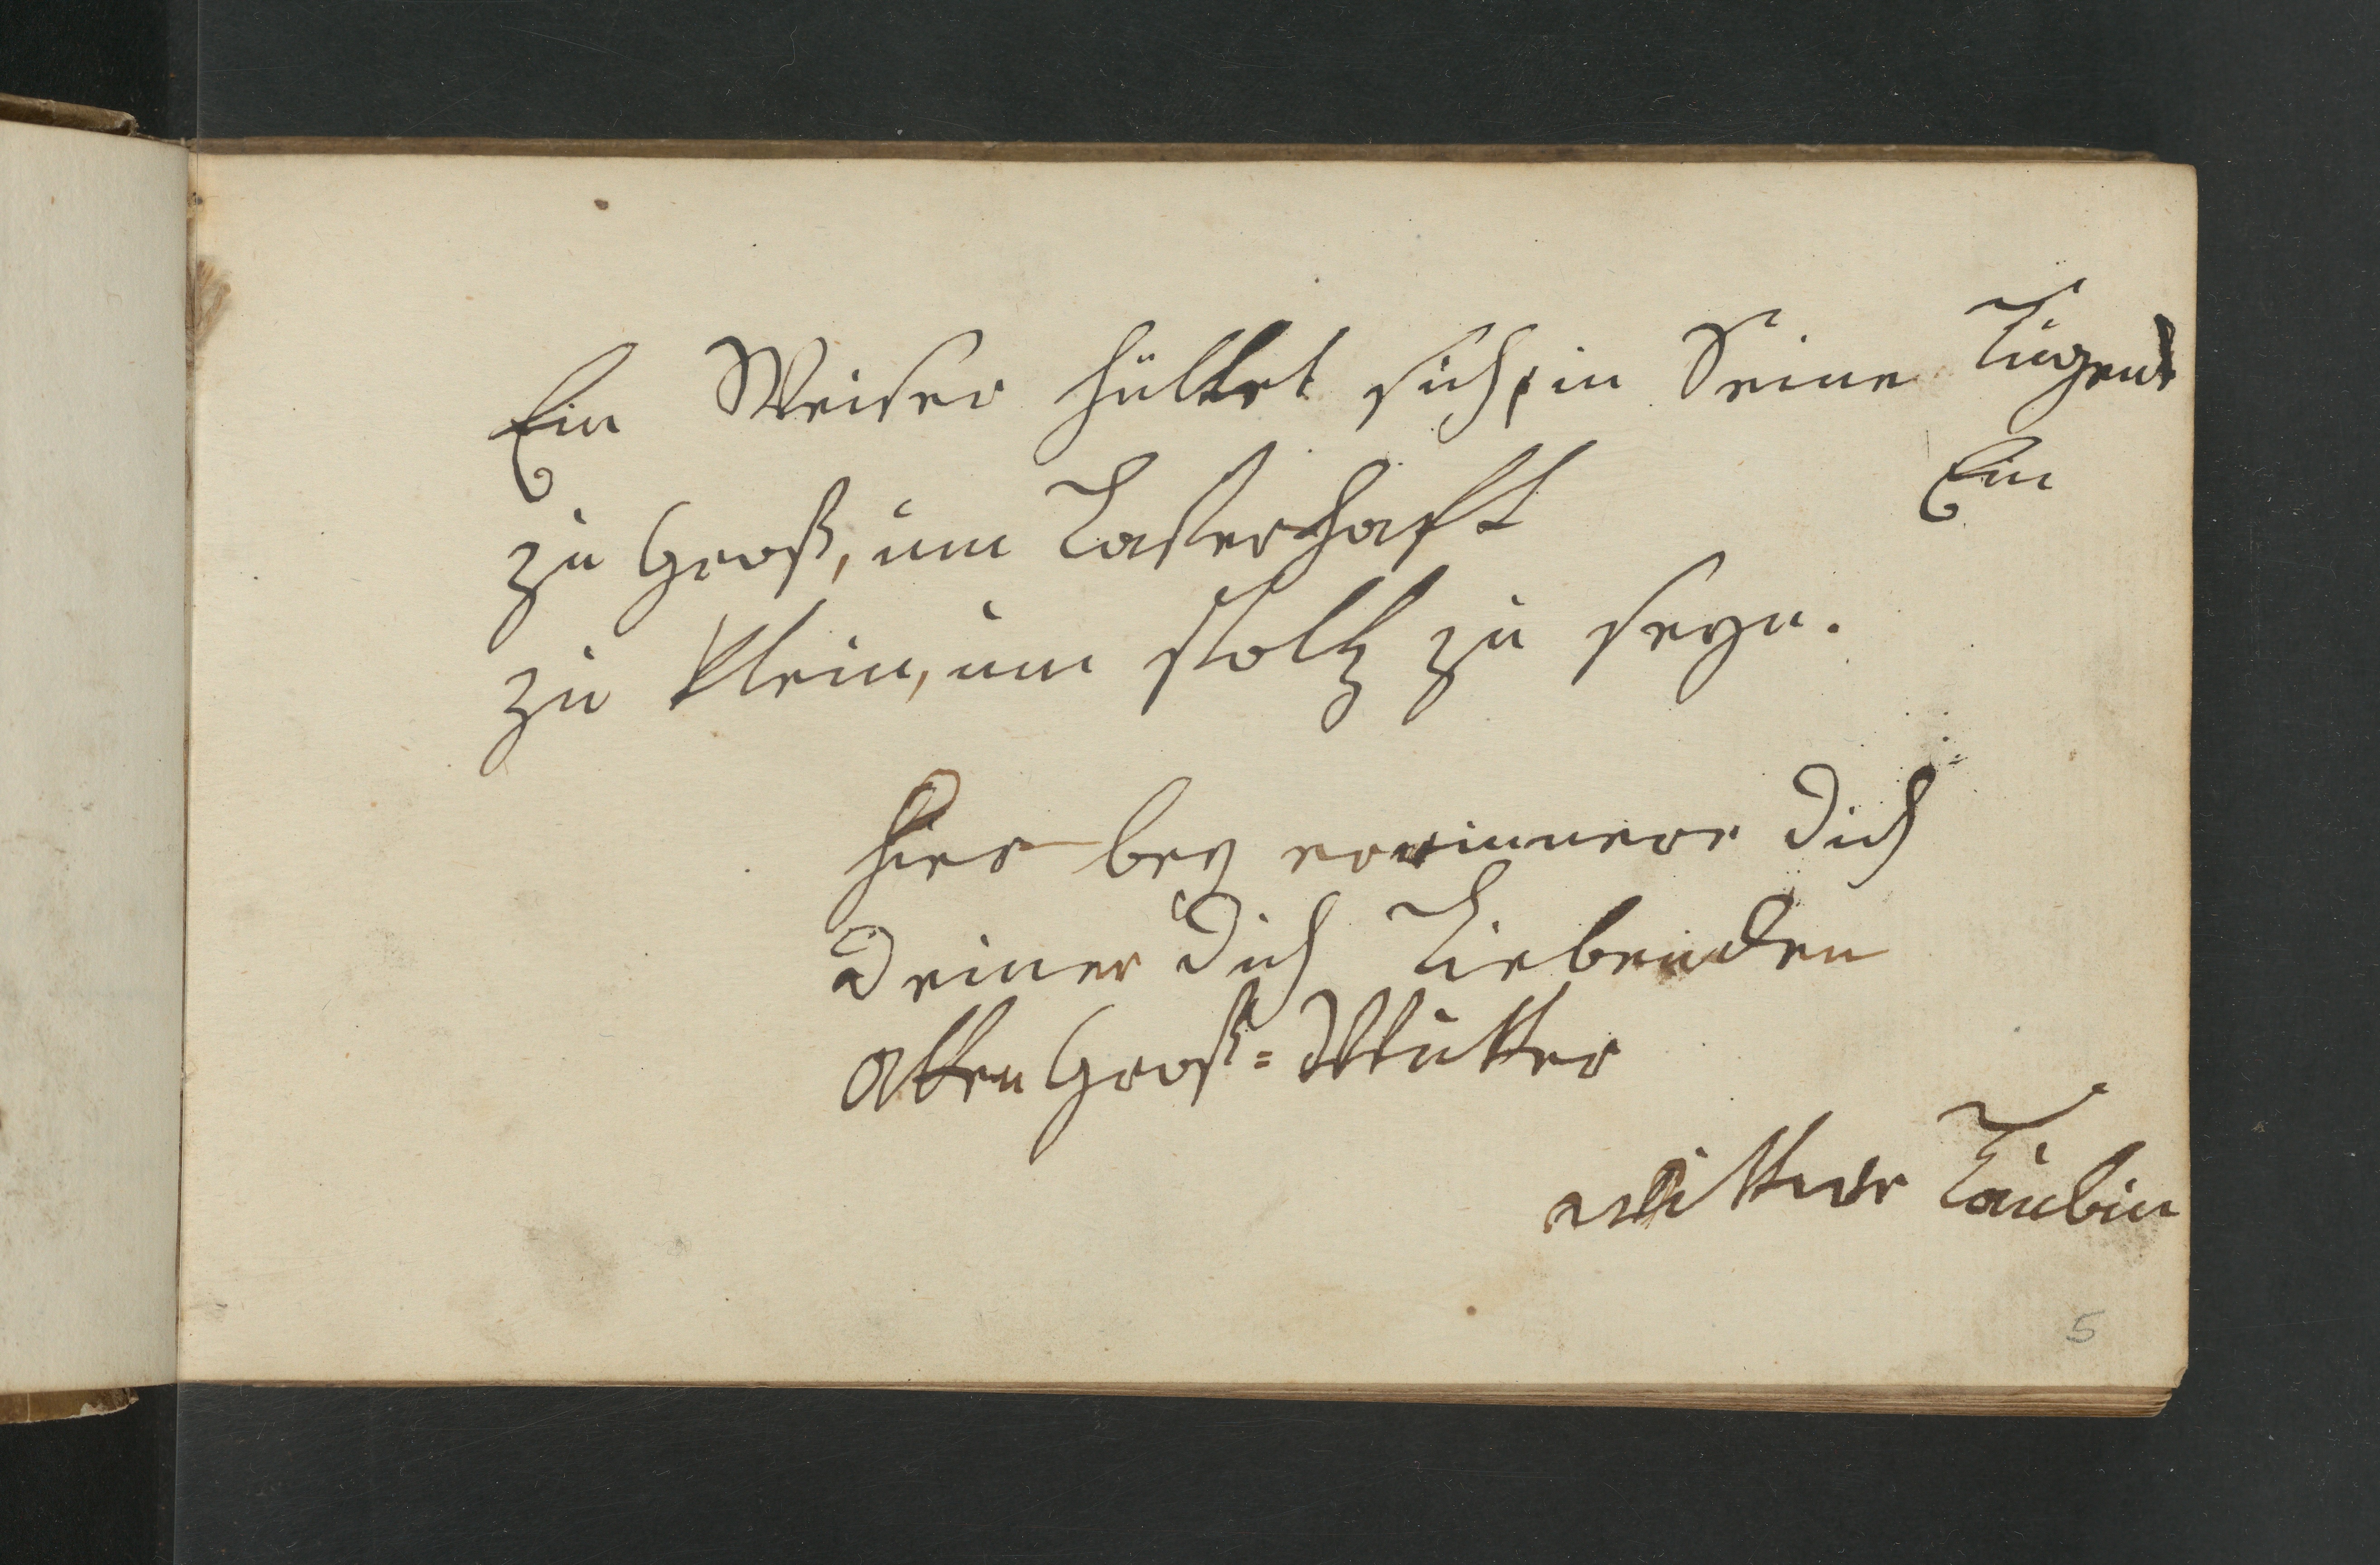 Ein Weiser hüllet sich, in Seine Tugend
Ein
zu Groß, um Lasterhaft
zu Klein, um stoltz zu seyn.
hier bey erinnere dich
deiner dich Liebenden
alten Groß=Mutter
wittwe Taubin
5